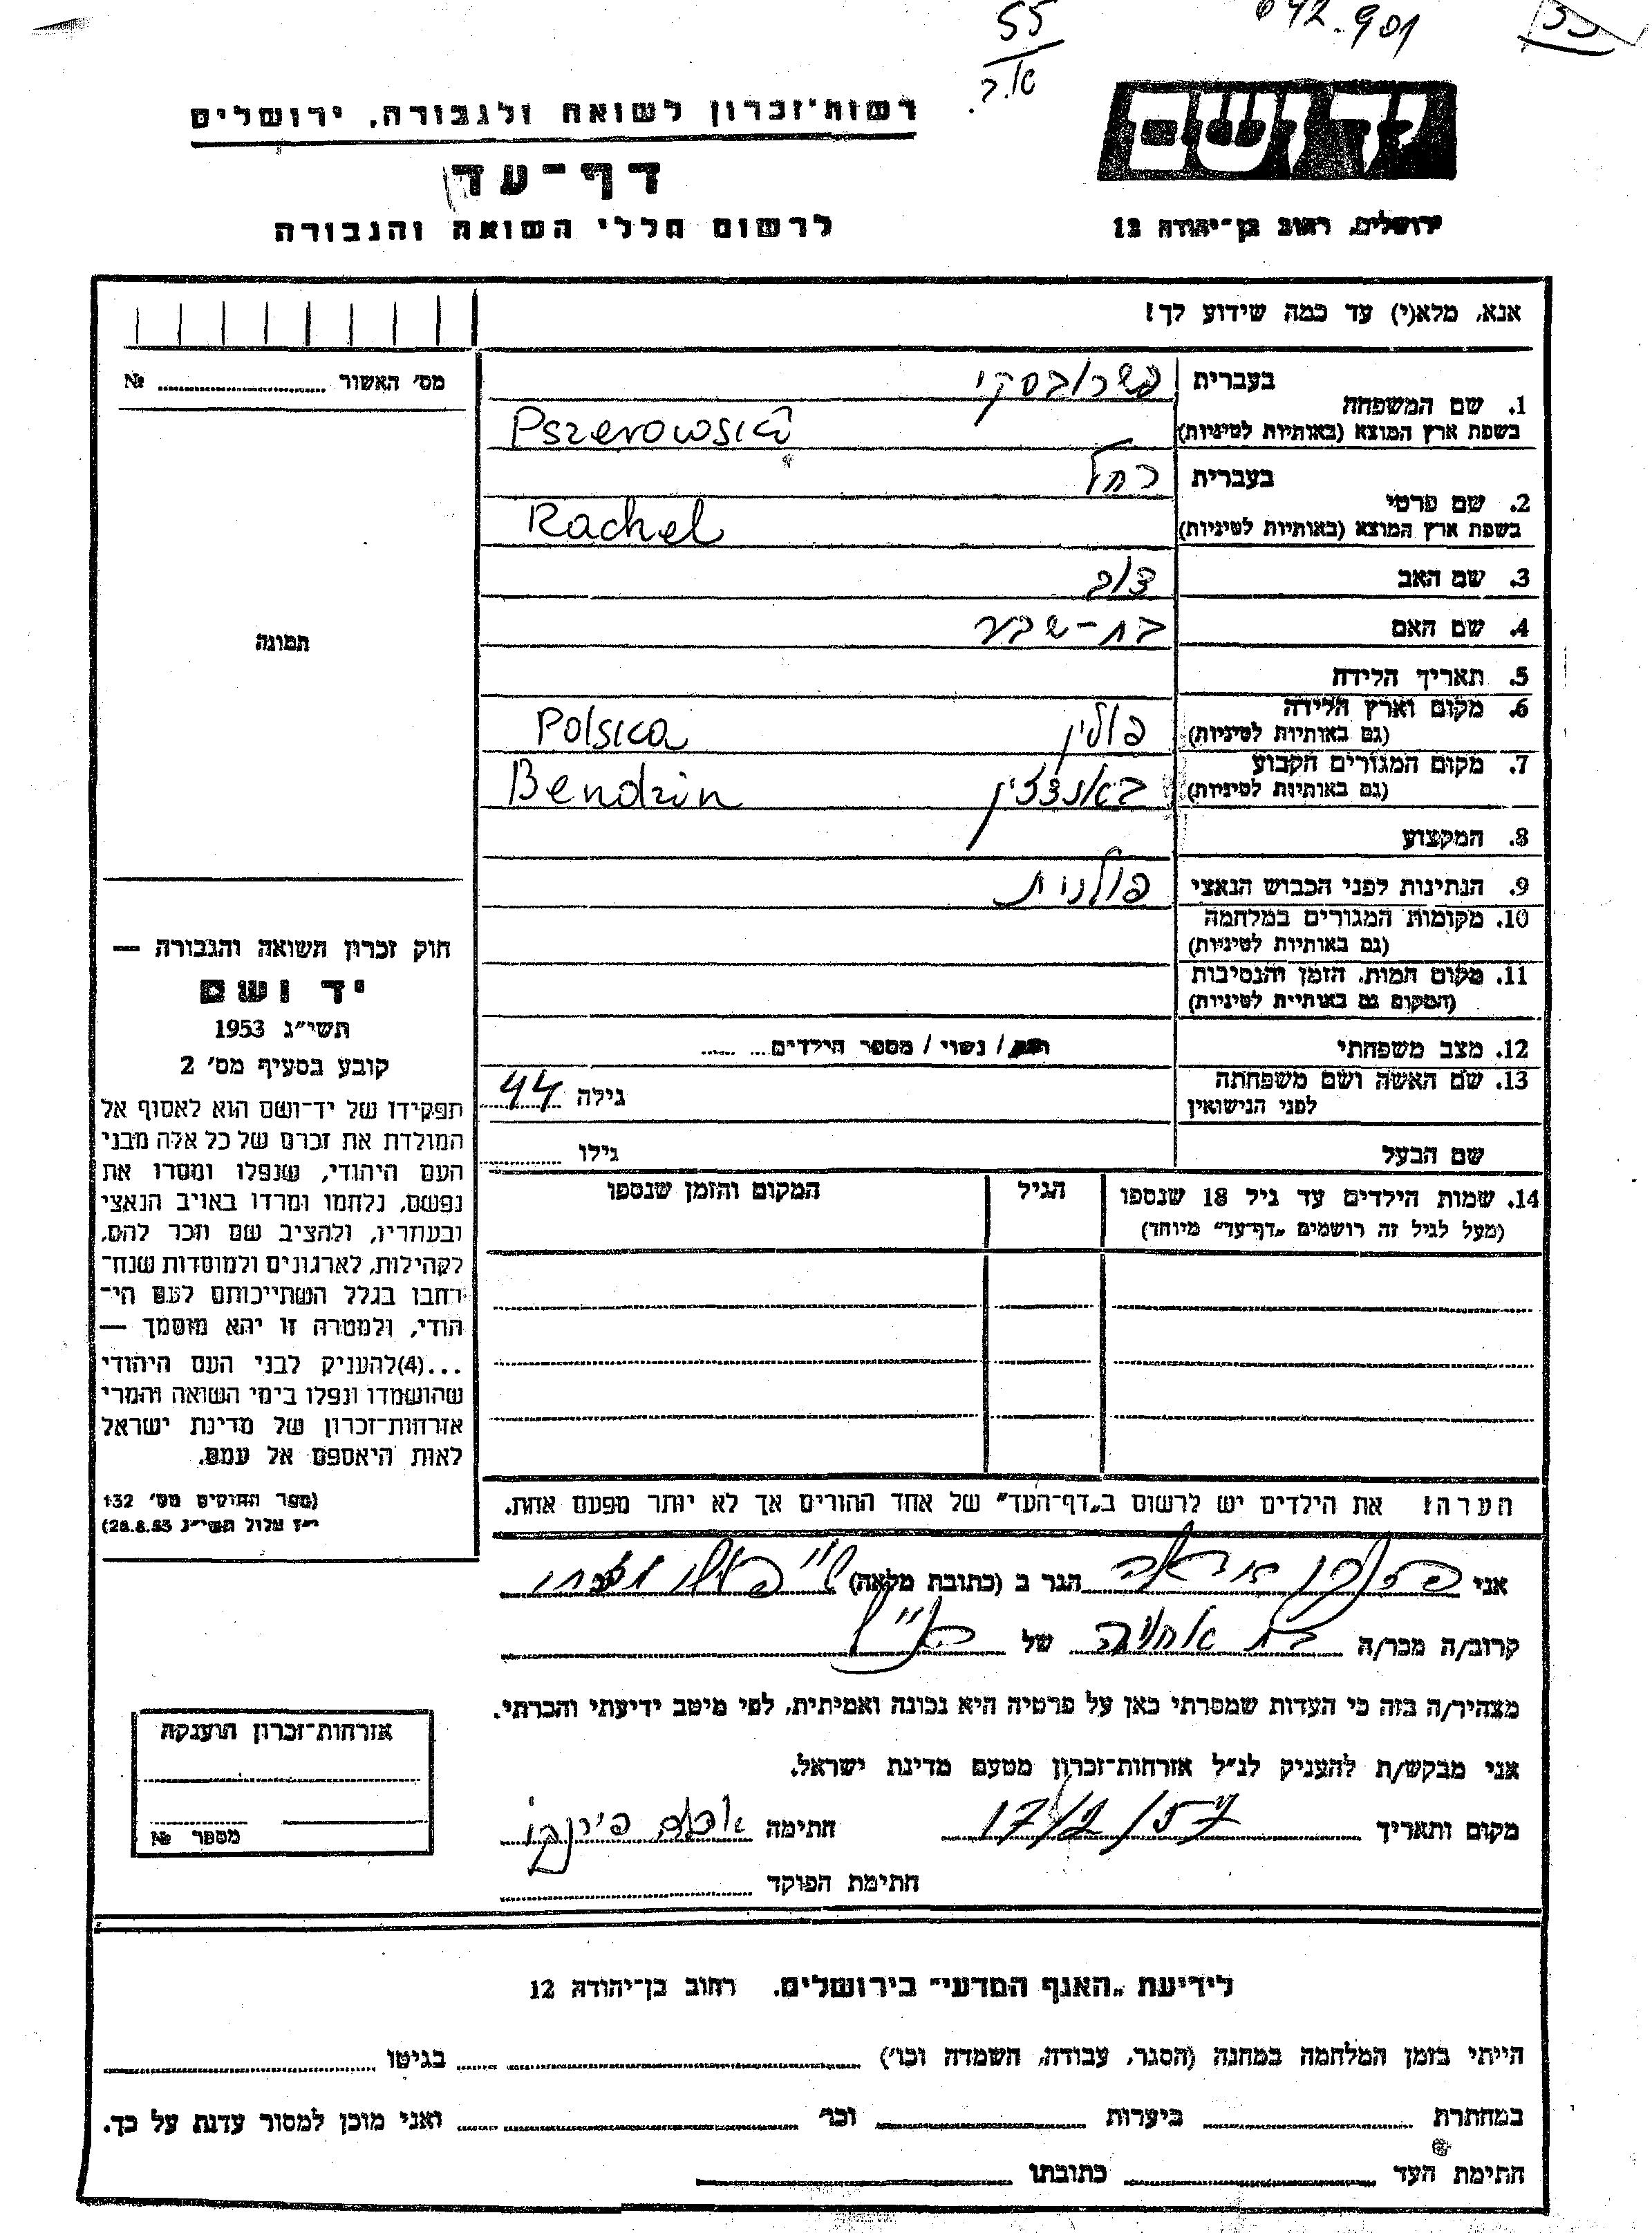 55
א.ב.
042.901
55
יד ושם
ירושלים, רחוב בן־יהודה 12
רשות־זכרון לשואה ולגבורה, ירושלים
דף־עד
לרשום חללי השואה והגבורה
אנא, מלא(י) עד כמה שידוע לך!
1. שם המשפחה
בעברית פשרובסקי
בשפת ארץ המוצא (באותיות לטיניות) Pszerowska
2. שם פרטי
בעברית רחל
בשפת ארץ המוצא (באותיות לטיניות) Rachel
3. שם האב
4. שם האם בת-שבע
5. תאריך הלידה
6. מקום וארץ הלידה
(גם באותיות לטיניות) פולין Polska
7. מקום המגורים הקבוע
(גם באותיות לטיניות) באנדזין Bendzin
8. המקצוע
9. הנתינות לפני הכבוש הנאצי פולנית
10. מקומות המגורים במלחמה
(גם באותיות לטיניות)
11. מקום המות, הזמן והנסיבות
(המקום גם באותיות לטיניות)
12. מצב משפחתי רוק / נשוי / מספר הילדים
13. שם האשה ושם משפחתה
לפני הנישואין גילה 44
שם הבעל גילו
14. שמות הילדים עד גיל 18 שנספו הגיל המקום והזמן שנספו
(מעל לגיל זה רושמים „דף־עד" מיוחד)
הערה! את הילדים יש לרשום ב„דף־העד" של אחד ההורים אך לא יותר מפעם אחת.
מס׳ האשור №
תמונה
חוק זכרון השואה והגבורה —
יד ושם
תשי״ג 1953
קובע בסעיף מס׳ 2
תפקידו של יד־ושם הוא לאסוף אל
המולדת את זכרם של כל אלה מבני
העם היהודי, שנפלו ומסרו את
נפשם, נלחמו ומרדו באויב הנאצי
ובעוזריו, ולהציב שם וזכר להם,
לקהילות, לארגונים ולמוסדות שנח־
רחבו בגלל השתייכותם לעם הי־
הודי, ולמטרה זו יהא מוסמך —
...(4)להעניק לבני העם היהודי
שהושמדו ונפלו בימי השואה והמרי
אזרחות־זכרון של מדינת ישראל
לאות היאספם אל עמם.
(ספר החוקים מס׳ 132
י״ז אלול תשי״ג 28.8.53)
אני הגר ב (כתובת מלאה)
קרוב/ה מכר/ה בת אחותה של הנ״ל
מצהיר/ה בזה כי העדות שמסרתי כאן על פרטיה היא נכונה ואמיתית, לפי מיטב ידיעתי והכרתי.
אני מבקש/ת להעניק לנ״ל אזרחות־זכרון מטעם מדינת ישראל.
מקום ותאריך 17/2/57 חתימה
חתימת הפוקד
אזרחות־זכרון הוענקה
מספר №
לידיעת „האגף המדעי" בירושלים, רחוב בן־יהודה 12
הייתי בזמן המלחמה במחנה (הסגר, עבודה, השמדה וכו׳) בגיטו
במחתרת ביערות וכו׳ ואני מוכן למסור עדות על כך.
חתימת העד כתובתו